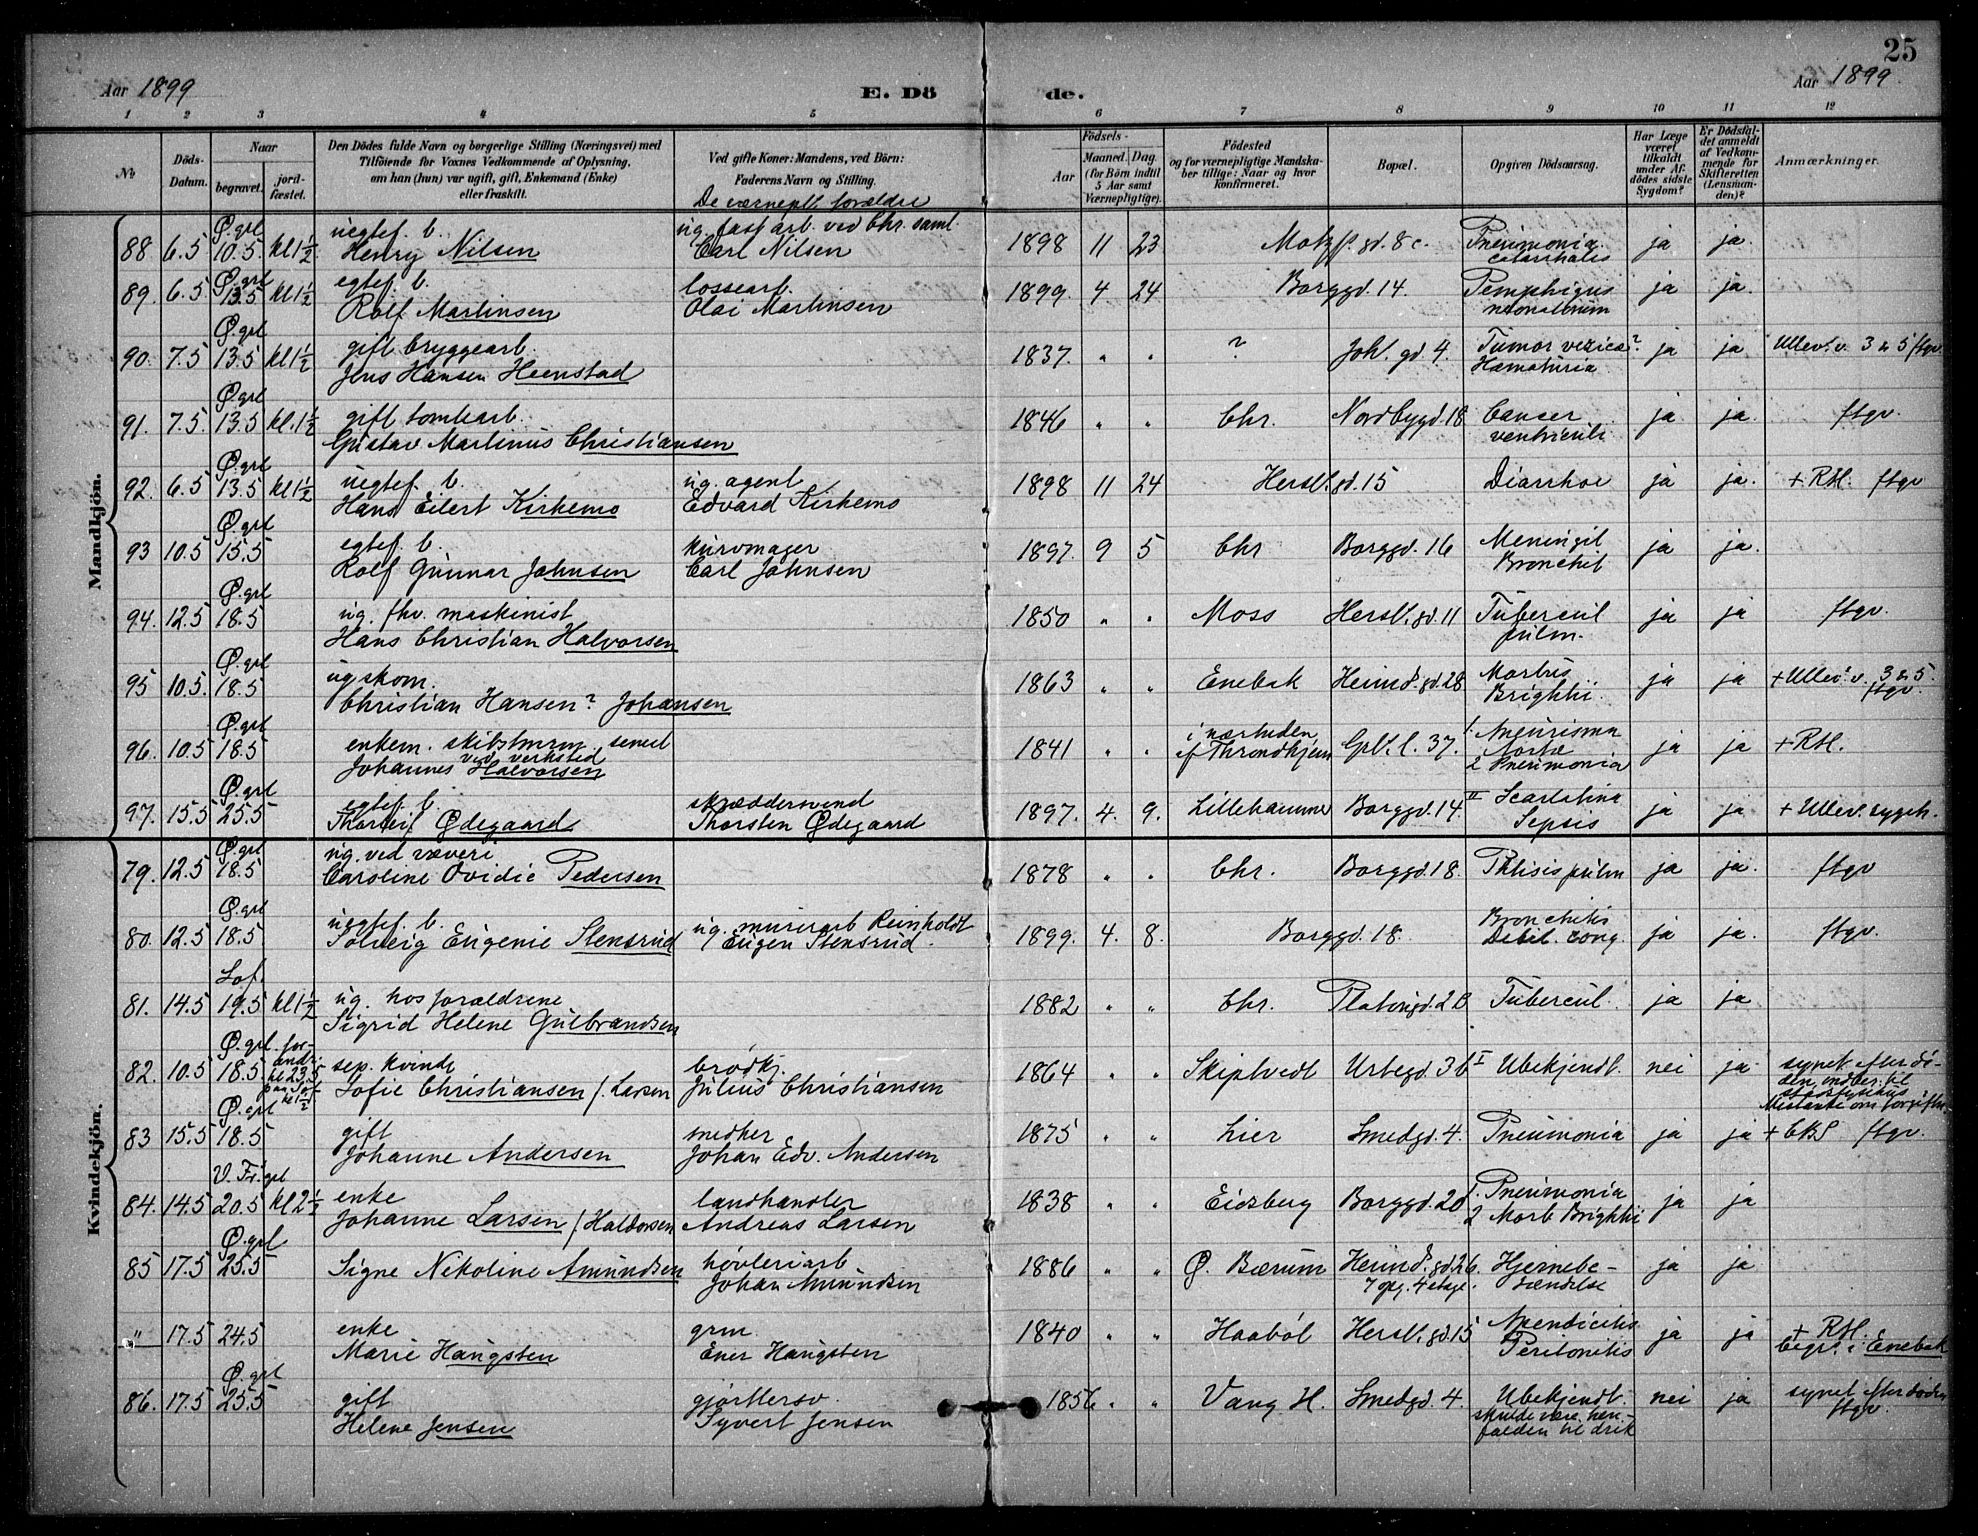 25
Aar 1899
E. Dö
de.
Aar 1899.
1 2 3 4 5 6 7 8 9 10 11 12
No
Döds-
Datum.
Naar
begravet.
jord-
fæstet.
Den Dödes fulde Navn og borgerlige Stilling (Næringsvei) med
Tilföiende for Voxnes Vedkommende af Oplysning,
om han (hun) var ugift, gift, Enkemand (Enke)
eller fraskilt.
Ved gifte Koner: Mandens, ved Börn:
Faderens Navn og Stilling.
De værnepl. forældre
Födsels-
Aar
Maaned. Dag.
(for Börn indtil
5 Aar samt
Værnepligtige).
Födested
og for værnepligtige Mandska-
ber tillige: Naar og hvor
konfirmeret.
Bopæl.
Opgiven Dödsaarsag.
Har Læge
været
tilkaldt
under Af-
dödes sidste
Sygdom?
Er Dödsfal-
det anmeldt
af Vedkom-
mende for
Skifteretten
(Lensman-
den)?
Anmærkninger.
Mandkjön.
Ø. grl uegtef. b. ug. fastarb. ved Chr. saml.
88 6.5 10.5 kl 1½ Henry Nilsen Carl Nilsen 1898 11 23 Motzf. gd. 8c. Pneumonia catarrhalis ja ja
Ø. grl egtef. b. lossearb.
89. 6.5 13.5 kl 1½ Rolf Martinsen Olai Martinsen 1899. 4 24 Borggd. 14. Pemphigus neonatorum ja ja.
Ø. grl gift bryggearb.
90. 7.5 13.5 kl 1½ Jens Hansen Heenstad 1837. " " ? Joh. gd 4. Tumor vezica? Hæmaturia ja ja Ullev. v. 3 & 5 ftgv.
Ø. grl gift tomtearb.
91. 7.5. 13.5 kl. 1½ Gustav Martinus Christiansen 1846 " " Chr. Nordbygd. 18 Cancer ventriculi ja ja. ftgv.
Ø. grl uegtef. b. ug. agent
92. 6.5 13.5 kl 1½ Hans Eilert Kirkemo Edvard Kirkemo 1898 11 24 Hersl. gd. 15 Diarrhoe ja ja. + RH. ftgv
Ø. grl egtef. b. kurvmager
93 10.5 15.5 Rolf Gunnar Johnsen Carl Johnsen 1897. 9 5 Chr Borggd. 16 Meningit Bronchit ja ja.
Ø. grl ug. fhv. maskinist
94. 12.5 18.5 Hans Christian Halvorsen 1850 " " Moss Hersl. gd. 11 Tubercul pulm. ja ja ftgv.
Ø. grl ug skom.
95 10.5. 18.5 Christian Hansen? Johansen 1863 " " Enebak Heimd. gd. 28 Morbus Brightii. ja ja + Ullev. v. 3 & 5. ftgv.
Ø. grl enkem. skibstmrm. senest ved verksted
96. 10.5 18.5 Johannes Halvorsen 1841 " " i nærheden af Throndhjem Grl. l. 37. 1. Aneurisma Aortæ 2 Pneumonia ja ja + RH.
Ø. grl egtef. b. skræddersvend
97. 15.5 25.5 Thorleif Ødegaard Thorsten Ødegaard 1897. 4. 9. Lillehammer Borggd. 14. II Scarlatina Sepsis ja ja + Ullev. sygeh.
Kvindekjön.
Ø. grl ug. ved væveri
79. 12.5 18.5 Caroline Ovidie Pedersen 1878 " " Chr. Borggd. 18. Phtisis pulm ja ja. ftgv
Ø. grl uegtef. b. ug. murerarb Reinholdt
80. 12.5 18.5 Solveig Eugenie Stensrud Eugen Stensrud. 1899. 4. 8. Borggd. 18. Bronchitis Debil. cong. ja ja. ftgv.
Sof. ug. hos forældrene
81. 14.5 19.5 kl 1½ Sigrid Helene Gulbrandsen 1882 " " Chr. Platougd. 2 Tubercul. ja ja
Ø. grl. for-andr. sep. kvinde brødkj.
82. 10.5 18.5 Sofie Christiansen f. Larsen Julius Christiansen 1864 " " Skiptvedt Urtegd. 36 I Ubekjendt. nei ja. synet efter dø-den, indber. til stadsfysikus Mistanke om forgiftn.
Ø. grl gift snedker
83 15.5 18.5 Johanne Andersen Johan Edv. Andersen 1875 " " Lier Smedgd. 4. Pneumonia ja ja + CBS ftgv.
V. Fr. grl enke landhandler
84. 14.5 20.5 kl 2½ Johanne Larsen f. Haldorsen Andreas Larsen 1838 " " Eidsberg Borggd. 20 1. Pneumonia 2 Morb Brightii ja ja
Ø. grl høvleriarb
85 17.5 25.5 Signe Nikoline Amundsen Johan Amundsen 1886 " " Ø. Bærum Heimd. gd 26. 7 opg. 4 etage. Hjernebe-tændelse ja ja
enke grm.
" 17.5 24.5 Marie Haugsten Ener Haugsten 1840 " " Haabøl Hersl. gd. 15 Apendicitis Peritonitis ja ja + RH. begr. i Enebak
Ø. grl gift gjørtlersv.
86. 17.5 25.5 Helene Jensen Syvert Jensen 1856 " " Vang H. Smedgd. 4 Ubekjendt. skulde være hen-falden til drik nei ja synet efter døden ftgv.